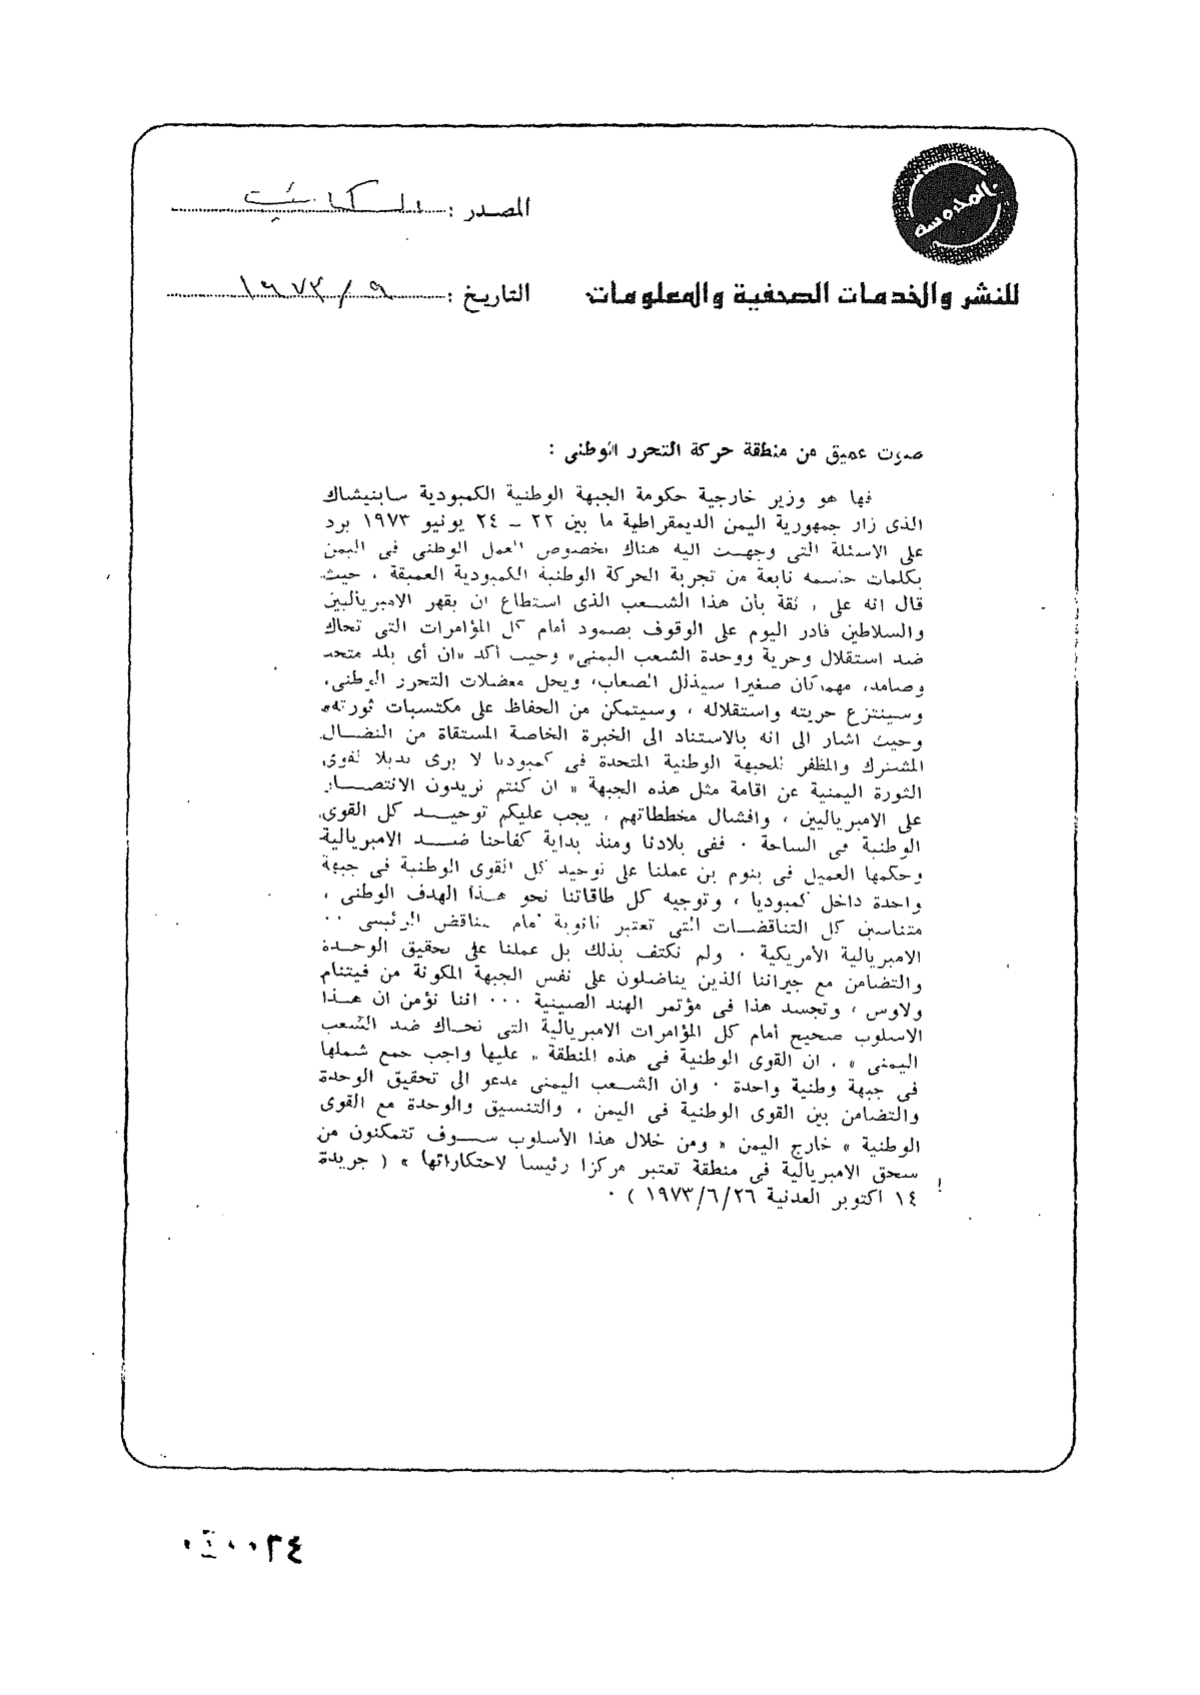 المحروسة
المصدر : الكاتب
للنشر والخدمات الصحفية والمعلومات
التاريخ : ٩/١٩٧٣
صوت عميق من منطقة حركة التحرر الوطنى :
فها هو وزير خارجية حكومة الجبهة الوطنية الكمبودية سابنيشاك
الذى زار جمهورية اليمن الديمقراطية ما بين ٢٢ ــ ٢٤ يونيو ١٩٧٣ يرد
على الاسئلة التى وجهت اليه هناك بخصوص العمل الوطنى فى اليمن
بكلمات حاسمه نابعة من تجربة الحركة الوطنية الكمبودية العميقة ، حيث
قال انه على « ثقة بأن هذا الشعب الذى استطاع ان يقهر الامبرياليين
والسلاطين قادر اليوم على الوقوف بصمود أمام كل المؤامرات التى تحاك
ضد استقلال وحرية ووحدة الشعب اليمنى» وحيث أكد «ان أى بلد متحد
وصامد، مهما كان صغيرا سيذلل الصعاب، ويحل معضلات التحرر الوطنى،
وسينتزع حريته واستقلاله ، وسيتمكن من الحفاظ على مكتسبات ثورته»
وحيث اشار الى انه بالاستناد الى الخبرة الخاصة المستقاة من النضال
المشترك والمظفر للجبهة الوطنية المتحدة فى كمبوديا لا يرى بديلا لقوى
الثورة اليمنية عن اقامة مثل هذه الجبهة « ان كنتم تريدون الانتصار
على الامبرياليين ، وافشال مخططاتهم ، يجب عليكم توحيد كل القوى
الوطنية فى الساحة ٠ ففى بلادنا ومنذ بداية كفاحنا ضد الامبريالية
وحكمها العميل فى بنوم بن عملنا على توحيد كل القوى الوطنية فى جبهة
واحدة داخل كمبوديا ، وتوجيه كل طاقاتنا نحو هذا الهدف الوطنى ،
متناسين كل التناقضات التى تعتبر ثانوية أمام تناقض الرئيسى ٠٠
الامبريالية الأمريكية ٠ ولم نكتف بذلك بل عملنا على تحقيق الوحدة
والتضامن مع جيراننا الذين يناضلون على نفس الجبهة المكونة من فيتنام
ولاوس ، وتجسد هذا فى مؤتمر الهند الصينية ٠٠٠ اننا نؤمن ان هذا
الاسلوب صحيح أمام كل المؤامرات الامبريالية التى تحاك ضد الشعب
اليمنى » ٠ ان القوى الوطنية فى هذه المنطقة « عليها واجب جمع شملها
فى جبهة وطنية واحدة ٠ وان الشعب اليمنى مدعو الى تحقيق الوحدة
والتضامن بين القوى الوطنية فى اليمن ، والتنسيق والوحدة مع القوى
الوطنية » خارج اليمن « ومن خلال هذا الأسلوب سوف تتمكنون من
سحق الامبريالية فى منطقة تعتبر مركزا رئيسا لاحتكاراتها » ( جريدة
١٤ اكتوبر العدنية ١٩٧٣/٦/٢٦ ) ٠